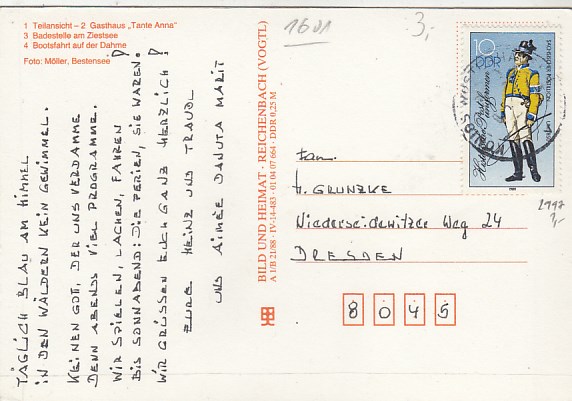 1 Teilansicht – 2 Gasthaus „Tante Anna"
3 Badestelle am Ziestsee
4 Bootsfahrt auf der Dahme
Foto: Möller, Bestensee
TÄGLICH BLAU AM HIMMEL
IN DEN WÄLDERN KEIN GEWIMMEL.
KEINEN GOTT, DER UNS VERDAMME
DENN ABENDS VIEL PROGRAMME.
WIR SPIELEN, LACHEN, FAHREN !
BIS SONNABEND: DIE FERIEN, SIE WAREN.
WIR GRÜSSEN EUCH GANZ HERZLICH !
EURE HEINZ UND TRAUDL
UND AIMÉE DANUTA MARIT
BILD UND HEIMAT · REICHENBACH (VOGTL)
A 1/B 21/88 · IV-14-483 · 01 04 07 664 · DDR 0,25 M
1601
3,-
10
DDR
Historische Postuniformen
1988
Fam.
H. GRUNZKE
Niedersedlitzer Weg 24
DRESDEN
8045